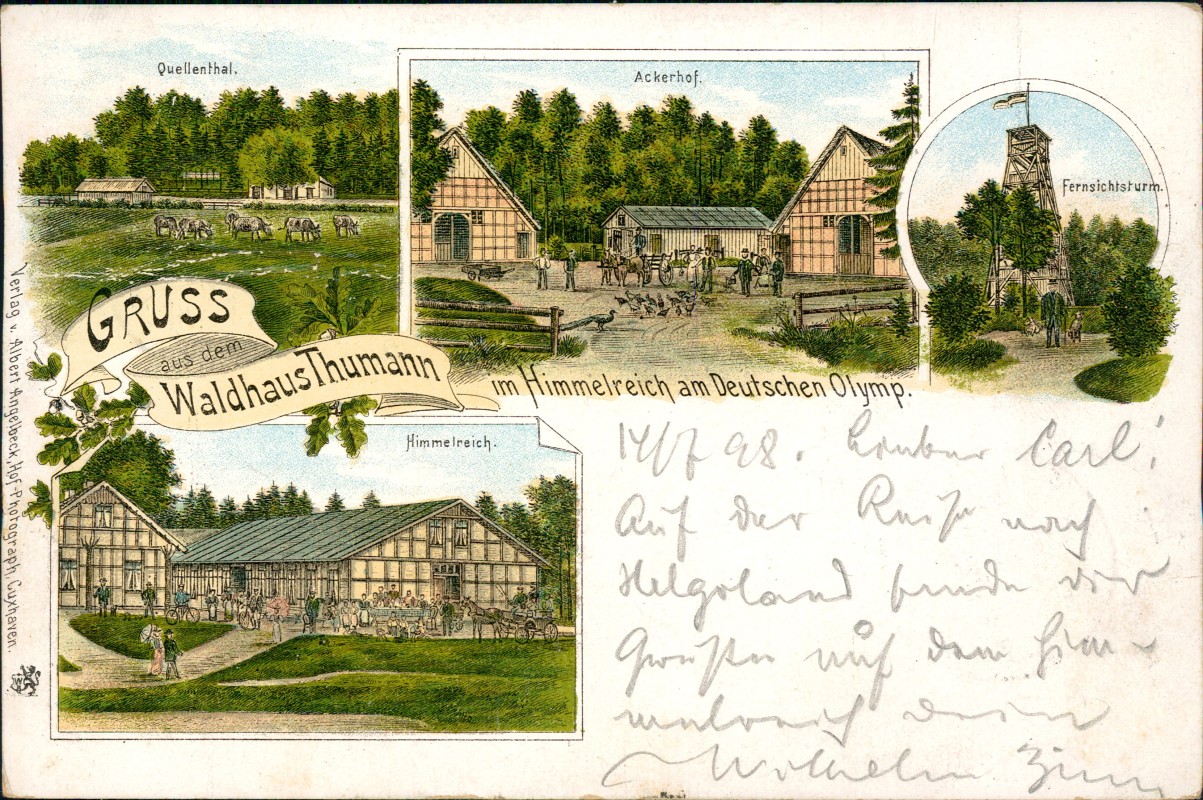 Quellenthal.
Ackerhof.
Fernsichtsturm.
GRUSS
aus dem
Waldhaus Thumann
im Himmelreich am Deutschen Olymp.
Himmelreich.
Verlag v. Albert Angelbeck, Hof-Photograph, Cuxhaven.
14/7 98. Lieber Carl!
Auf der Reise nach
Helgoland sende dir
Grüße auf dem Him-
melreich dein
Wilhelm